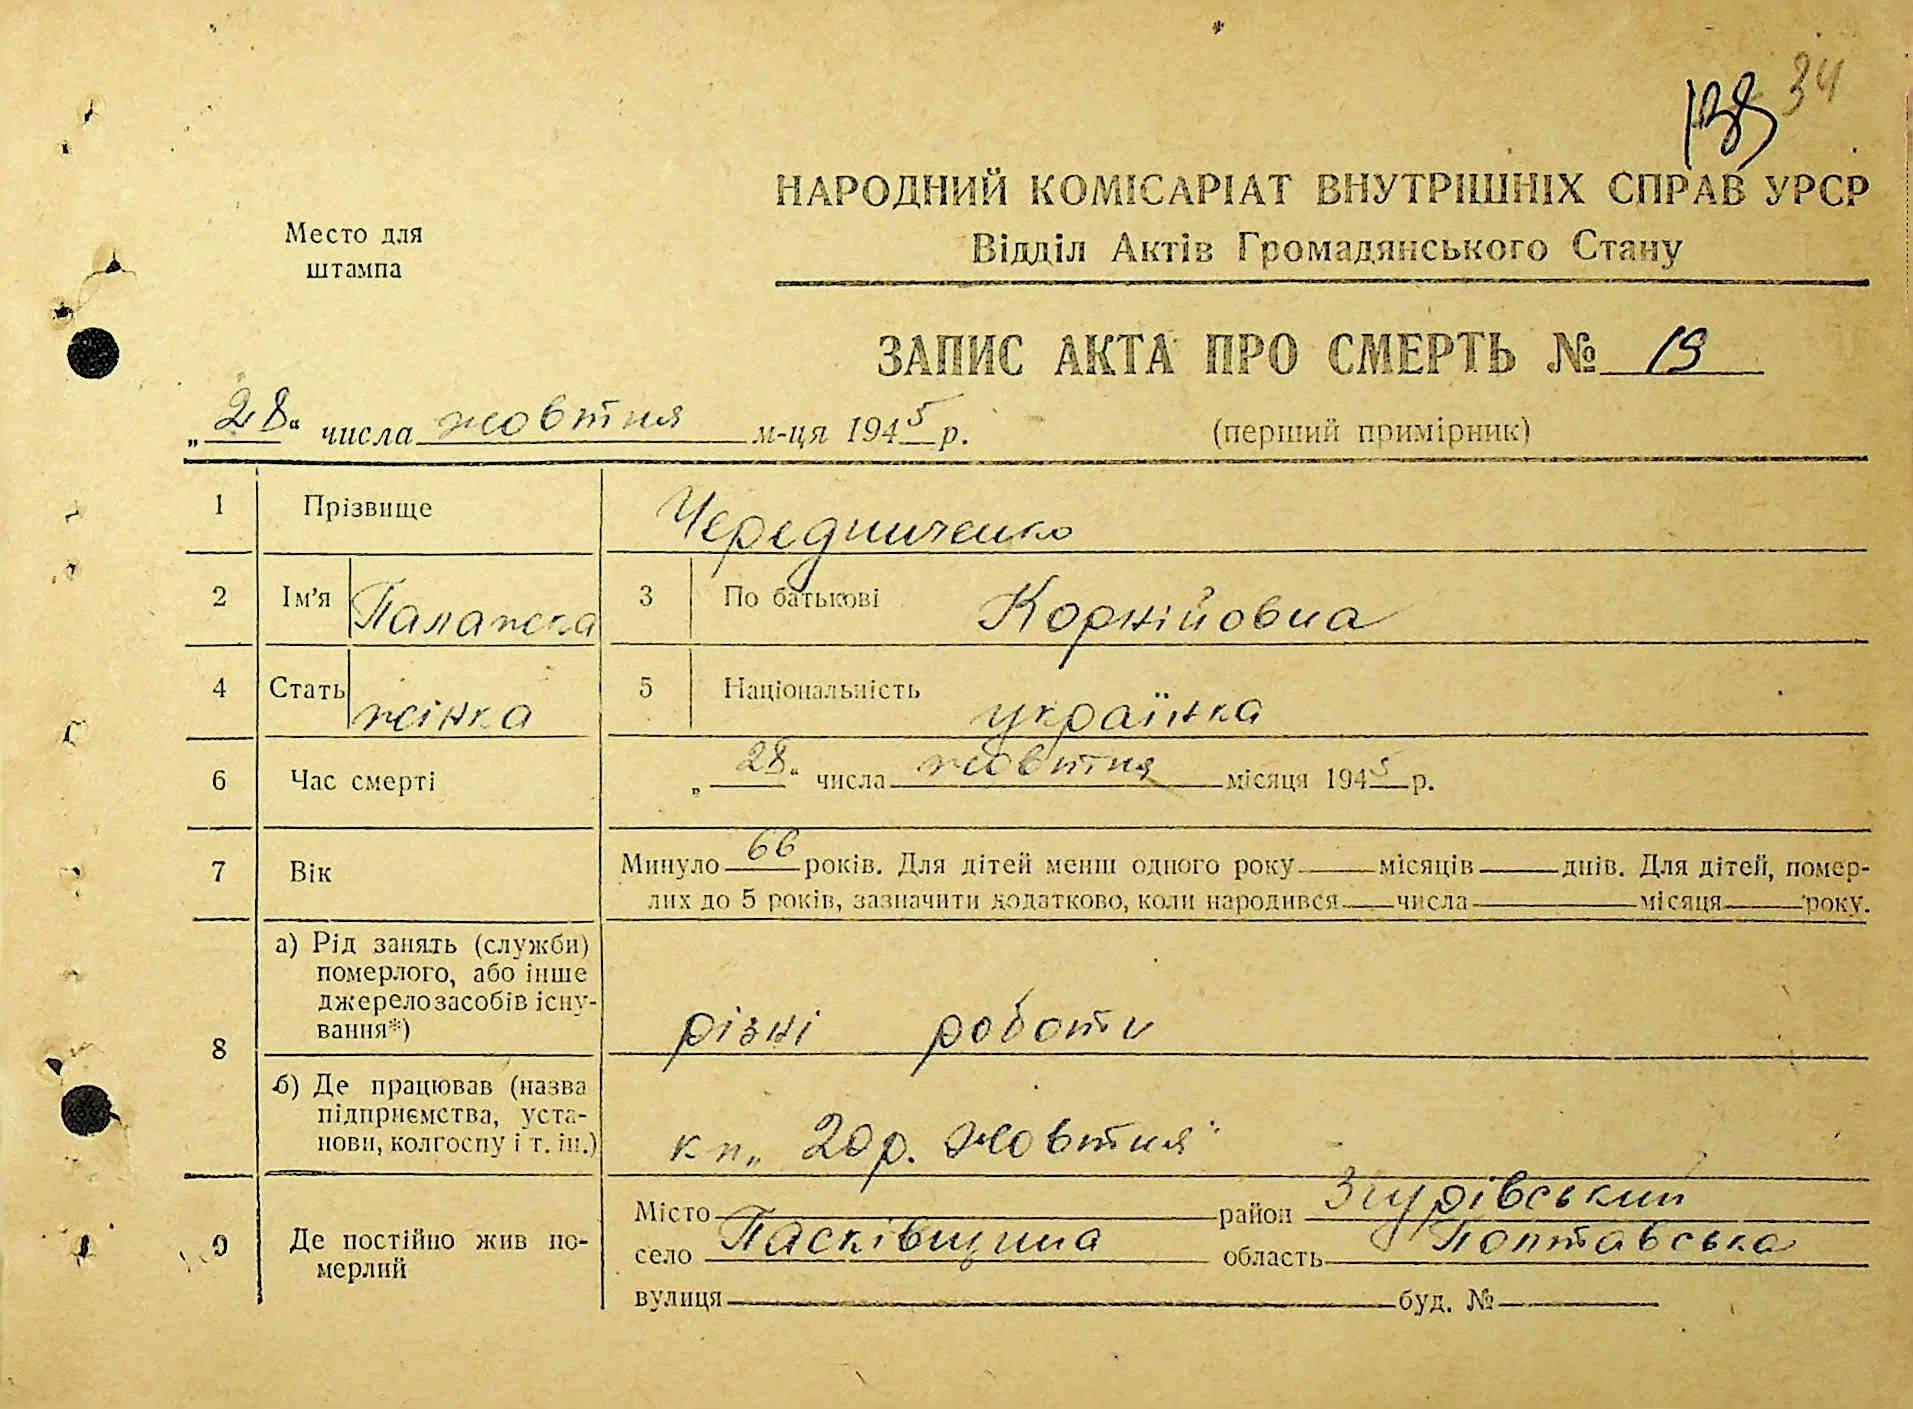 138 34
НАРОДНИЙ КОМІСАРІАТ ВНУТРІШНІХ СПРАВ УРСР
Відділ Актів Громадянського Стану
Место для
штампа
ЗАПИС АКТА ПРО СМЕРТЬ № 19
„28" числа жовтня м-ця 1945 р.
(перший примірник)
1 Прізвище Чередниченко
2 Ім'я Палажка 3 По батькові Корнійовна
4 Стать жінка 5 Національність українка
6 Час смерті „28" числа жовтня місяця 1945 р.
7 Вік Минуло 66 років. Для дітей менш одного року місяців днів. Для дітей, помер-
лих до 5 років, зазначити додатково, коли народився числа місяця року.
8 а) Рід занять (служби)
померлого, або інше
джерело засобів існу-
вання*)
різні роботи
б) Де працював (назва
підприємства, уста-
нови, колгоспу і т. ін.)
кп „20 р. Жовтня"
9 Де постійно жив по-
мерлий
Місто район Згурівський
село Пасківщина область Полтавська
вулиця буд. №